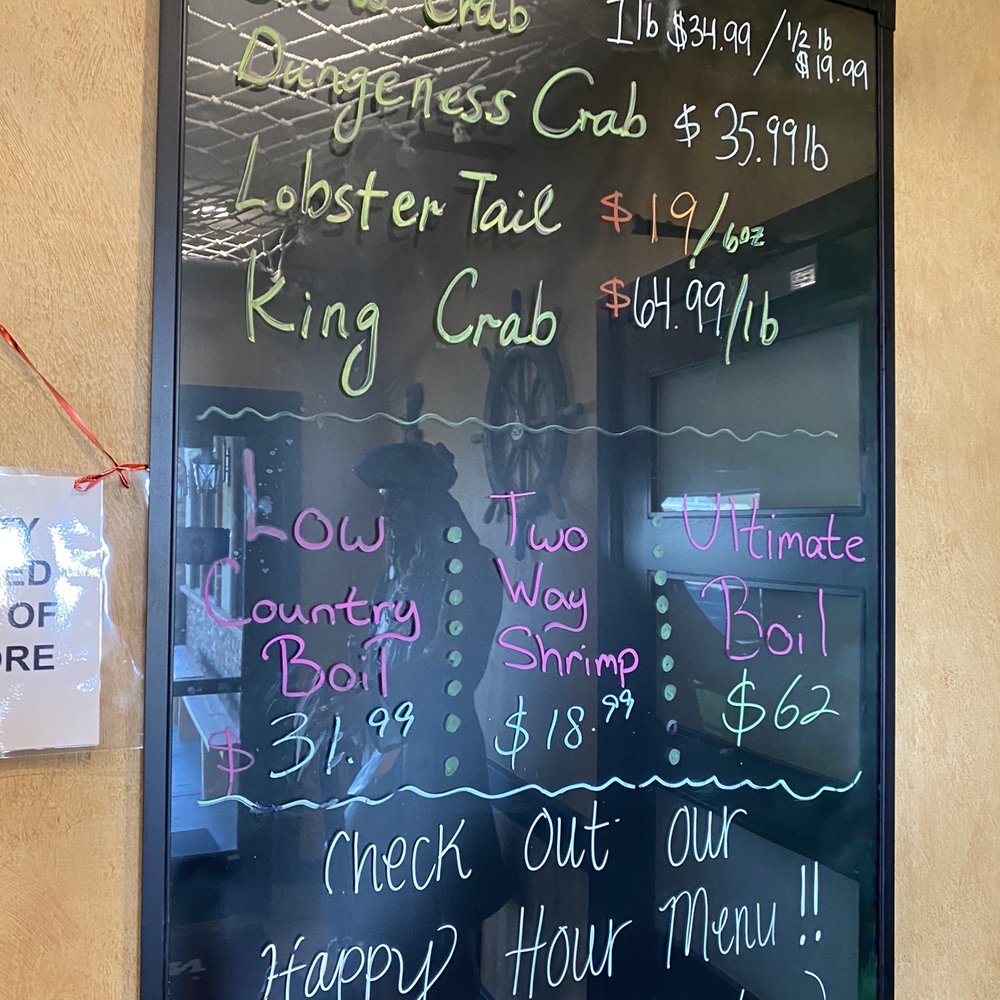 Crab 1lb $34.99 / 1/2 lb $19.99
Dungeness Crab $35.99 lb
Lobster Tail $19/6oz
King Crab $64.99/lb
Low Country Boil $31.99
Two Way Shrimp $18.99
Ultimate Boil $62
Check out our
Happy Hour Menu!!
ED
OF